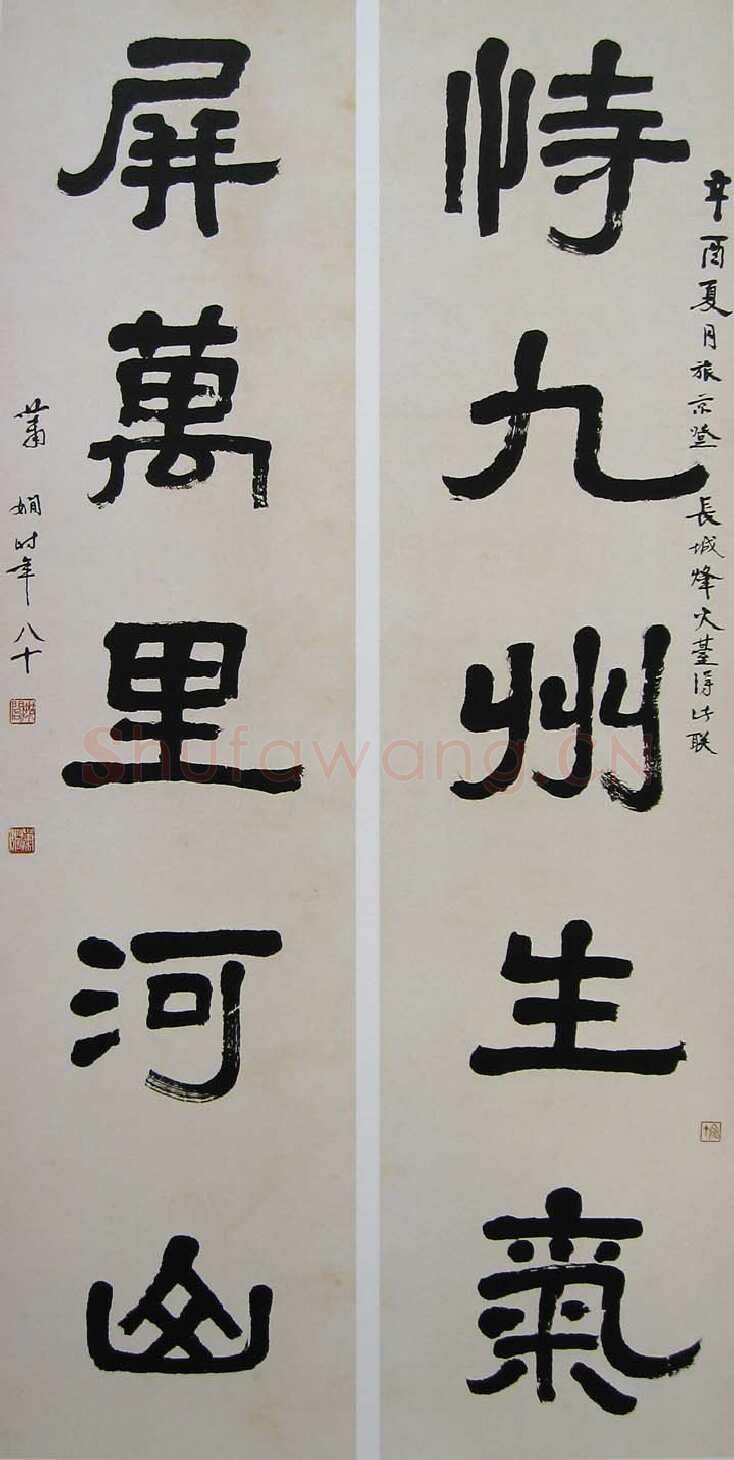 辛酉夏月旅京登長城烽火臺得此联
恃九州生氣
屏萬里河山
蕭嫻时年八十
Shufawang.CN